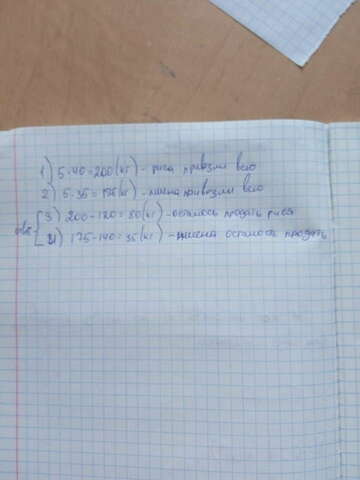 1) 5·40=200(кг) - риса привезли всего
2) 5·35=175(кг) - пшена привезли всего
3) 200-120=80(кг) - осталось продать риса
4) 175-140=35(кг) - пшена осталось продать